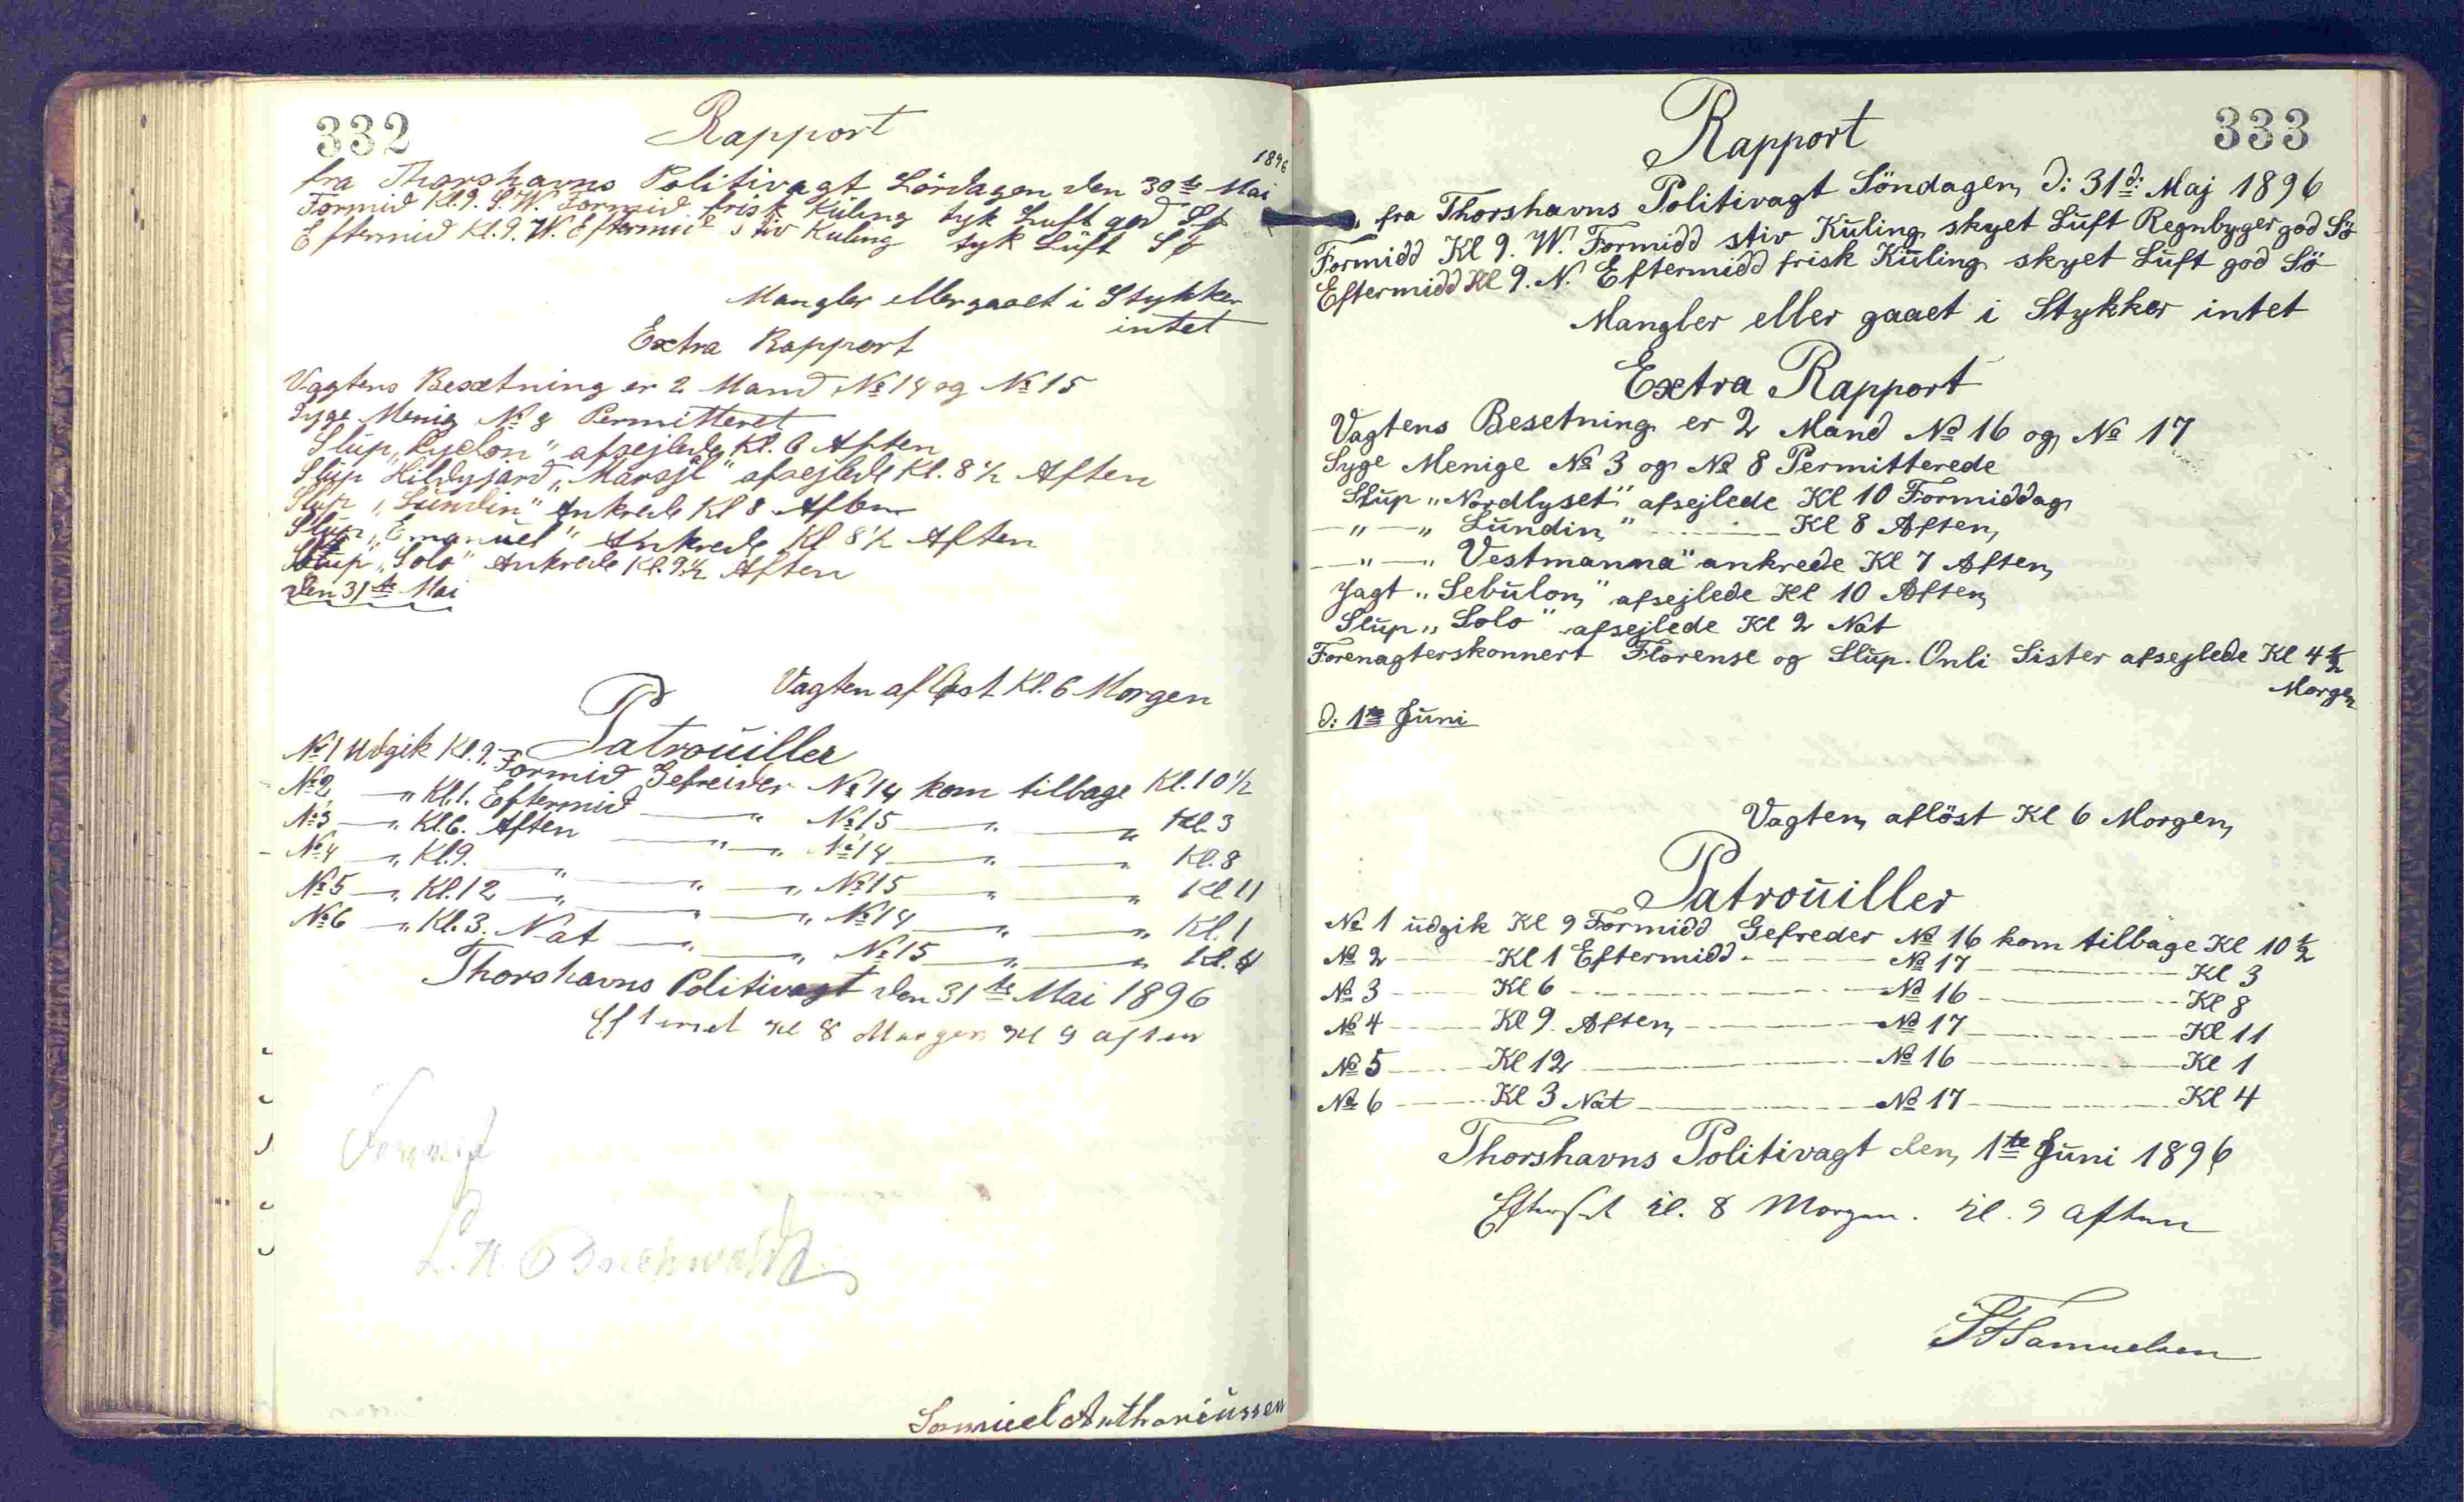 332
Rapport
1896
fra Thorshavns Politivagt Lördagen den 30te Mai
Formid Kl. 9. S.W. Formid frisk Küling tyk Luft god Sø
Eftermid Kl. 9. W. Eftermid Stiv Kuling tyk Luft Sø
Mangler eller gaaet i Stykker
intet
Extra Rapport
Vagtens Besætning er 2 Mand № 14 og № 15
Syge Menig № 8 Permitteret
Slup „ " afsejlede Kl. 6 Aften
Slup Hildyjard „ " afsejlede Kl. 8 1/2 Aften
Slup „Lündin" Ankrede Kl 8 Aften
Slup „Emanuel" Ankrede Kl 8 1/2 Aften
Slup „Solo" Ankrede Kl. 9 1/2 Aften
den 31te Mai
Vagten afløst Kl. 6 Morgen
Patrouiller
№ 1 Udgik Kl. 9. Formid Gefreider № 14 kom tilbage Kl. 10 1/2
№ 2 — " Kl. 1. Eftermid — " № 15 — " — " Kl. 3
№ 3 — " Kl. 6. Aften — " — " № 14 — " — " Kl. 8
№ 4 — " Kl. 9. — " — " — " № 15 — " — " Kl 11
№ 5 — " Kl. 12 — " — " — " № 14 — " — " Kl. 1
№ 6 — " Kl. 3. Nat — " — " № 15 — " — " Kl. 4
Thorshavns Politivagt den 31te Mai 1896
Kl 8 Morgen Kl 9 aften
L. H. Buchwaldt
Samuel Anthoniussen
333
Rapport
fra Thorshavns Politivagt Söndagen d: 31d: Maj 1896
Formidd Kl 9. W. Formidd stiv Küling skyet Lüft Regnbyger god Sö
Eftermidd Kl 9. N. Eftermidd frisk Küling skyet Lüft god Sö
Mangler eller gaaet i Stykker intet
Extra Rapport
Vagtens Besetning er 2 Mand № 16 og № 17
Syge Menige № 3 og № 8 Permitterede
Slup „Nordlyset" afsejlede Kl 10 Formiddag
— " — " Lündin" — Kl 8 Aften
— " — " Vestmanna" ankrede Kl 7 Aften
Jagt „Sebülon" afsejlede Kl 10 Aften
Slup „Solo" afsejlede Kl 2 Nat
Forenagterskonnert Florense og Slup. Onli Sister afsejlede Kl 4 1/2
Morgen
d: 1te Jüni
Vagten aflöst Kl 6 Morgen
Patroüiller
№ 1 üdgik Kl 9 Formidd Gefreder № 16 kom tilbage Kl 10 1/2
№ 2 — Kl 1 Eftermidd — № 17 — Kl 3
№ 3 — Kl 6 — № 16 — Kl 8
№ 4 — Kl 9. Aften — № 17 — Kl 11
№ 5 — Kl 12 — № 16 — Kl 1
№ 6 — Kl 3 Nat — № 17 — Kl 4
Thorshavns Politivagt den 1te Jüni 1896
Efterset Kl. 8 Morgen. Kl. 9 aften
Samuelsen